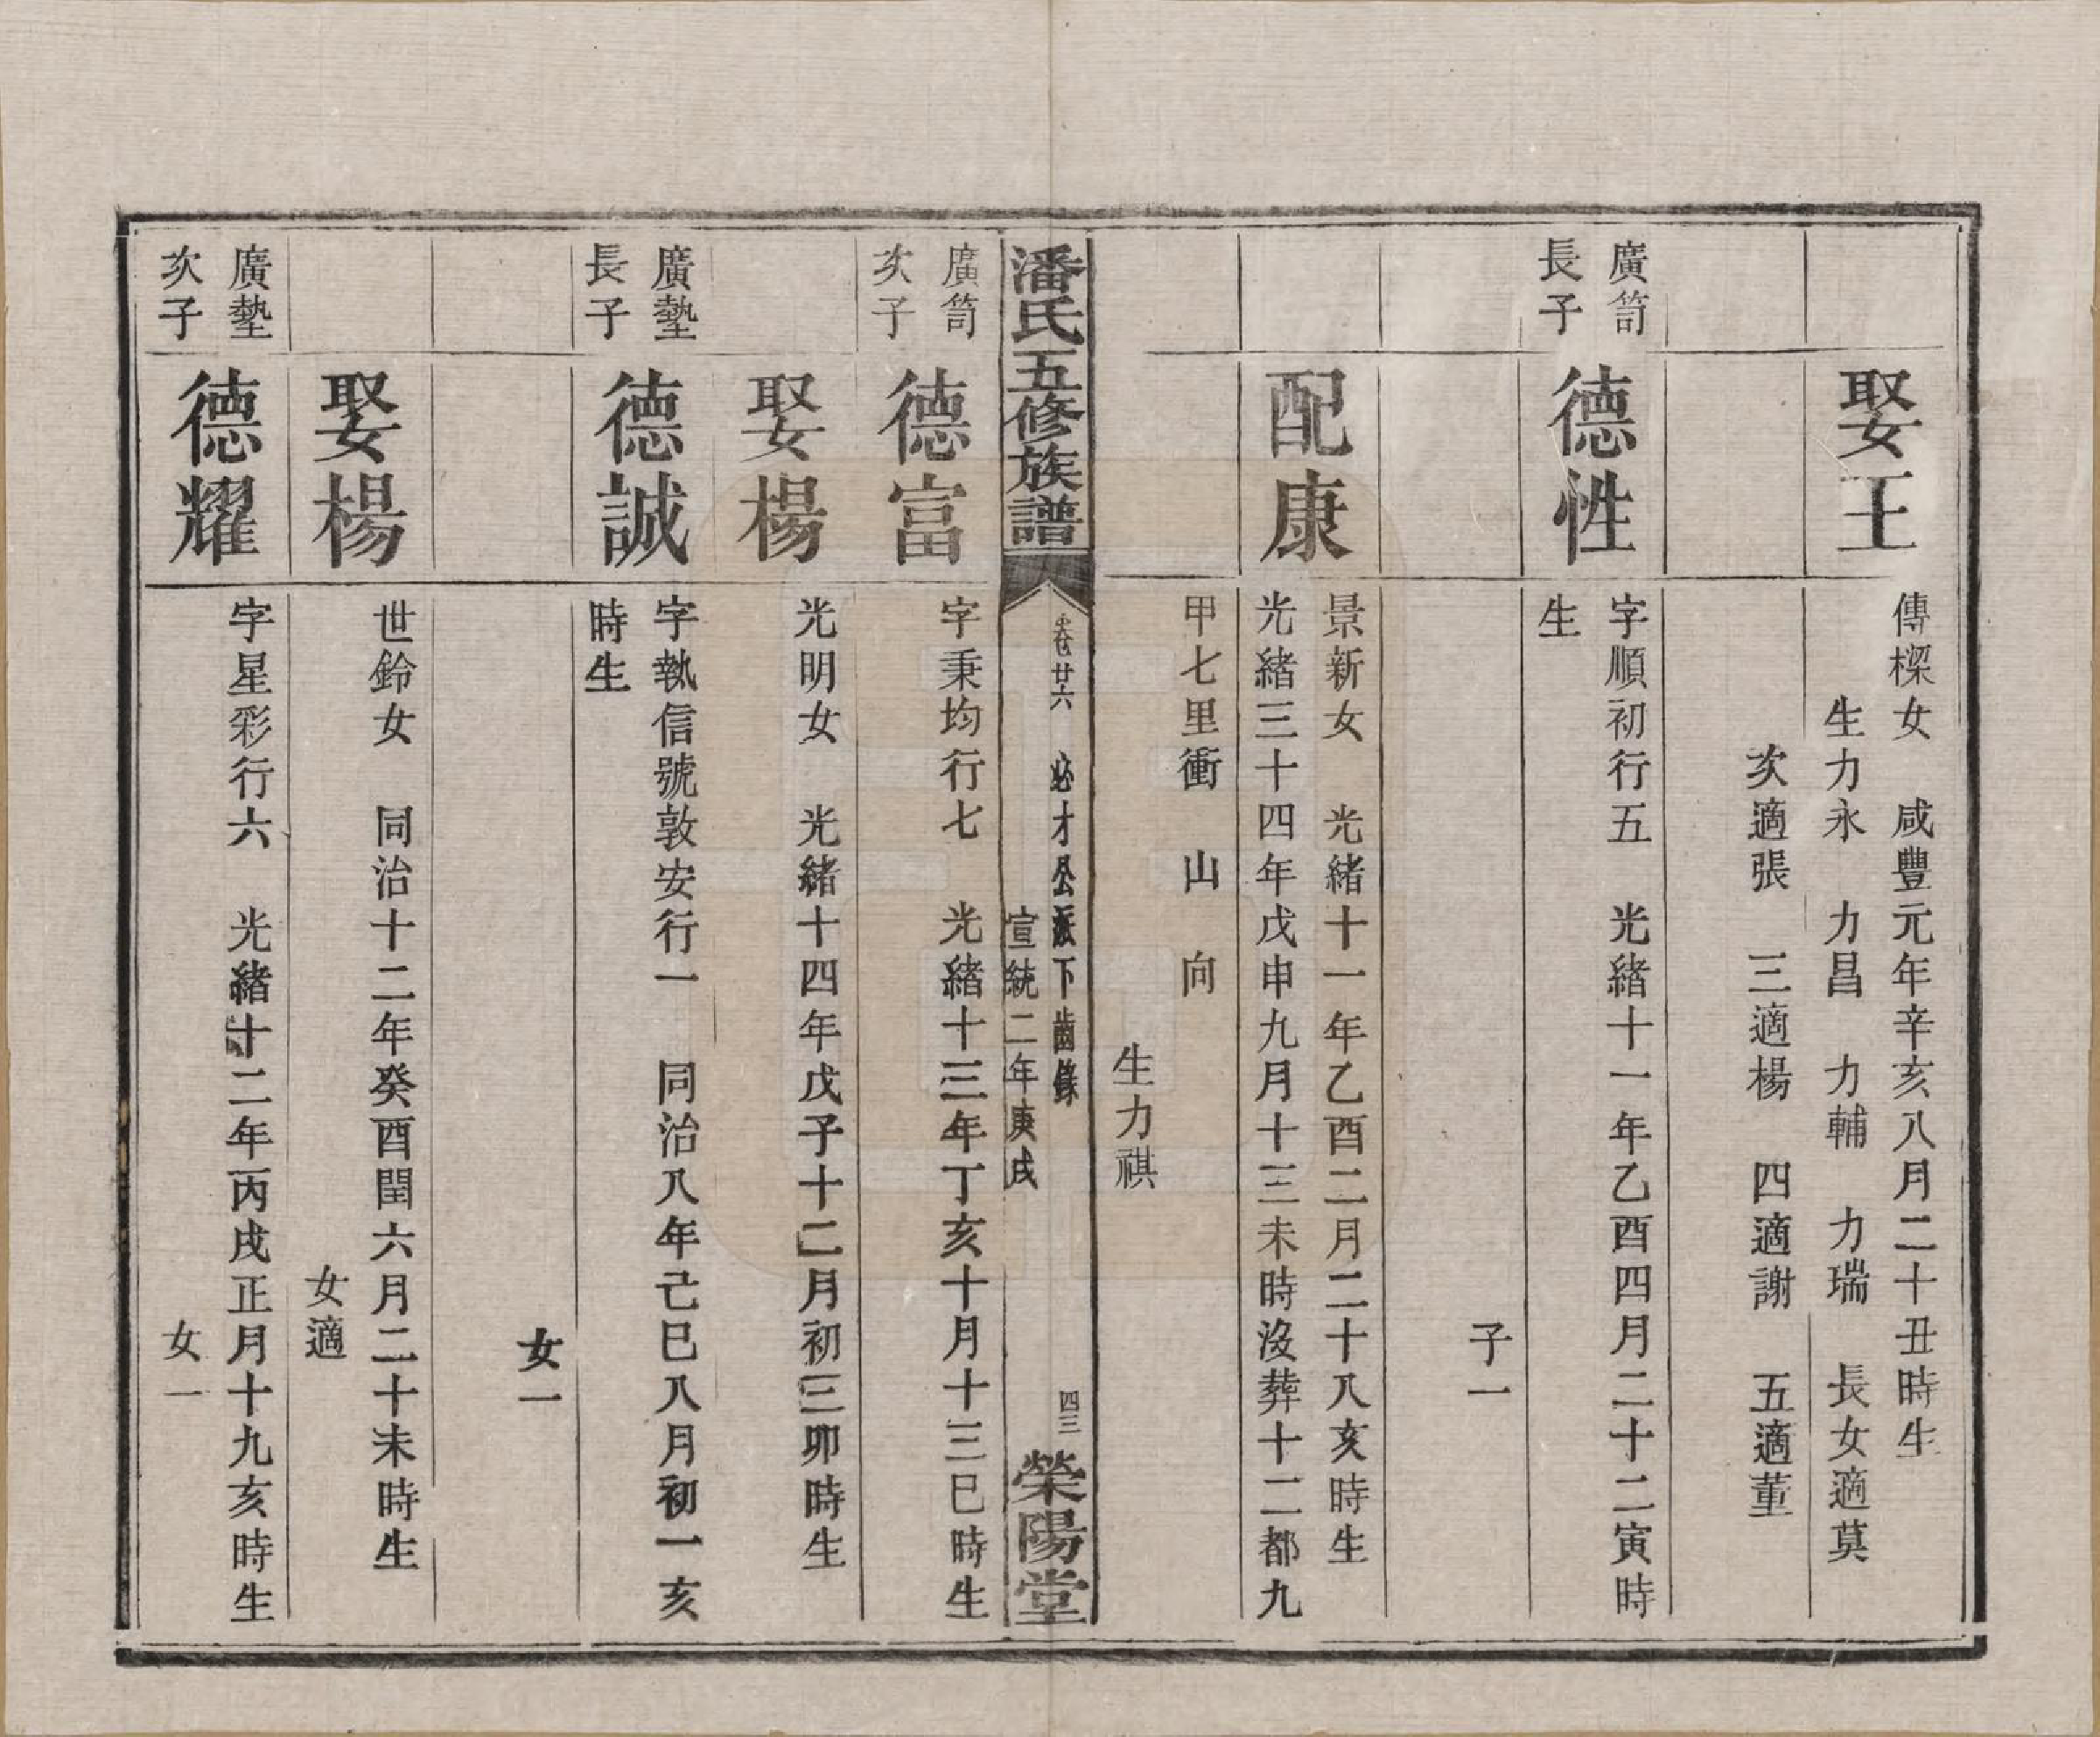 娶王
傳樑女　咸豐元年辛亥八月二十丑時生
生力永　力昌　力輔　力瑞　長女適莫
次適張　三適楊　四適謝　五適董
廣笥
長子
德性
字順初行五　光緒十一年乙酉四月二十二寅時
生
子一
配康
景新女　光緒十一年乙酉二月二十八亥時生
光緒三十四年戊申九月十三未時沒葬十二都九
甲七里衝　山　向
生力祺
潘氏五修族譜
卷廿六　必才公派下齒錄
宣統二年庚戌
四三
榮陽堂
廣笥
次子
德富
字秉均行七　光緒十三年丁亥十月十三巳時生
娶楊
光明女　光緒十四年戊子十二月初三卯時生
廣墊
長子
德誠
字執信號敦安行一　同治八年己巳八月初一亥
時生
女一
娶楊
世鈴女　同治十二年癸酉閏六月二十未時生
女適
廣墊
次子
德耀
字星彩行六　光緒十二年丙戌正月十九亥時生
女一